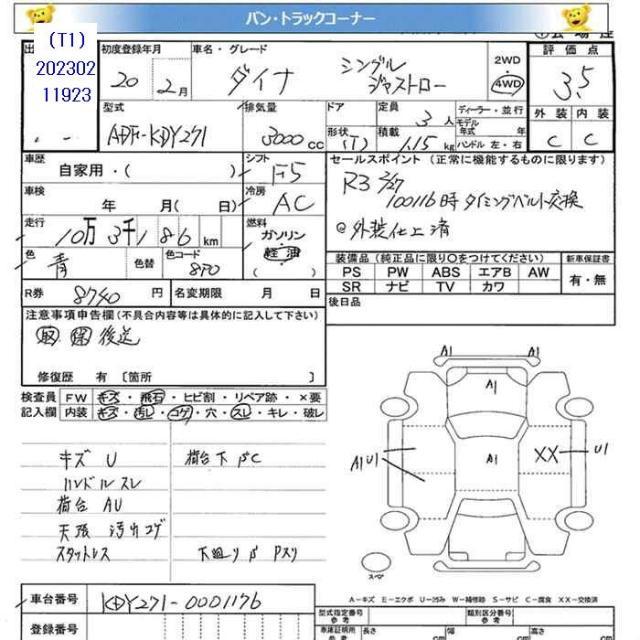 バン・トラックコーナー
(T1)
202302
11923
初度登録年月
20年2月
車名・グレード
ダイナ
シングル
ジャストロー
2WD
4WD
評価点
3.5
外装 内装
C C
型式
ADF-KDY271
排気量
3000cc
ドア
形状
(T)
定員
3人
積載
1.15kg
ディーラー・並行
モデル年式 年
ハンドル 左・右
車歴
自家用・( )
シフト
F5
セールスポイント (正常に機能するものに限ります)
R3 2/27
100116時 タイミングベルト交換
@外装仕上済
車検
年 月( 日)
冷房
AC
走行
10万3千186km
燃料
ガソリン
軽油
色
青
色替
色コード
8P0
装備品(純正品に限り○をつけてください)
PS PW ABS エアB AW
SR ナビ TV カワ
新車保証書
有・無
R券
8740円
名変期限 月 日
後日品
注意事項申告欄(不具合内容等は具体的に記入して下さい)
取 保 後送
修復歴 有 〔箇所
検査員
記入欄
FW キズ・飛石・ヒビ割・リペア跡・×要
内装 キズ・汚レ・コゲ・穴・スレ・キレ・破レ
キズ U
荷台下 βC
ハンドルスレ
荷台 AU
天張 汚レコゲ
スタットレス
下廻リ β Pスリ
A1 A1
A1
A1 U1
A1
XX
U1
スペア
A-キズ E-エクボ U-凹み W-補修跡 S-サビ C-腐食 XX-交換済
車台番号
KDY271-0001176
登録番号
型式指定番号
類別区分番号
車諸証明所
参考
長さ
cm
幅
cm
高さ
cm